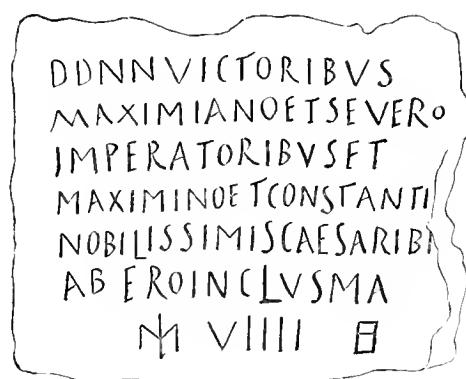 DDNNVICTORIBVS
MAXIMIANOETSEVERO
IMPERATORIBVSET
MAXIMINOETCONSTANTI
NOBILISSIMISCAESARIB
ABEROINCLVSMA
M VIIII